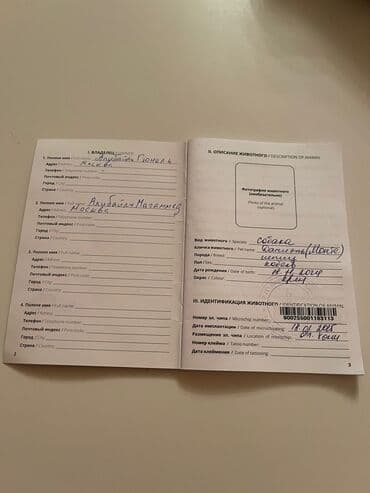 I. ВЛАДЕЛЕЦ / OWNER
1. Полное имя / Full name Алубайли Гюнель
Адрес / Address Москва
Телефон / Telephone number
Почтовый индекс / Postcode
Город / City
Страна / Country
2. Полное имя / Full name Алубайли Магаммед
Адрес / Address Москва
Телефон / Telephone number
Почтовый индекс / Postcode
Город / City
Страна / Country
3. Полное имя / Full name
Адрес / Address
Телефон / Telephone number
Почтовый индекс / Postcode
Город / City
Страна / Country
4. Полное имя / Full name
Адрес / Address
Телефон / Telephone number
Почтовый индекс / Postcode
Город / City
Страна / Country
2
II. ОПИСАНИЕ ЖИВОТНОГО / DESCRIPTION OF ANIMAL
Фотография животного
(необязательно)
Photo of the animal
(optional)
Вид животного / Species собака
Кличка животного / Name
Порода / Breed шпиц
Пол / Sex кобель
Дата рождения / Date of birth
Окрас / Colour
III. ИДЕНТИФИКАЦИЯ ЖИВОТНОГО / IDENTIFICATION OF ANIMAL
Номер эл. чипа / Microchip number 900255001183113
Дата имплантации / Date of microchipping
Размещение эл. чипа / Location of microchip
Номер клейма / Tattoo number
Дата клеймения / Date of tattooing
3